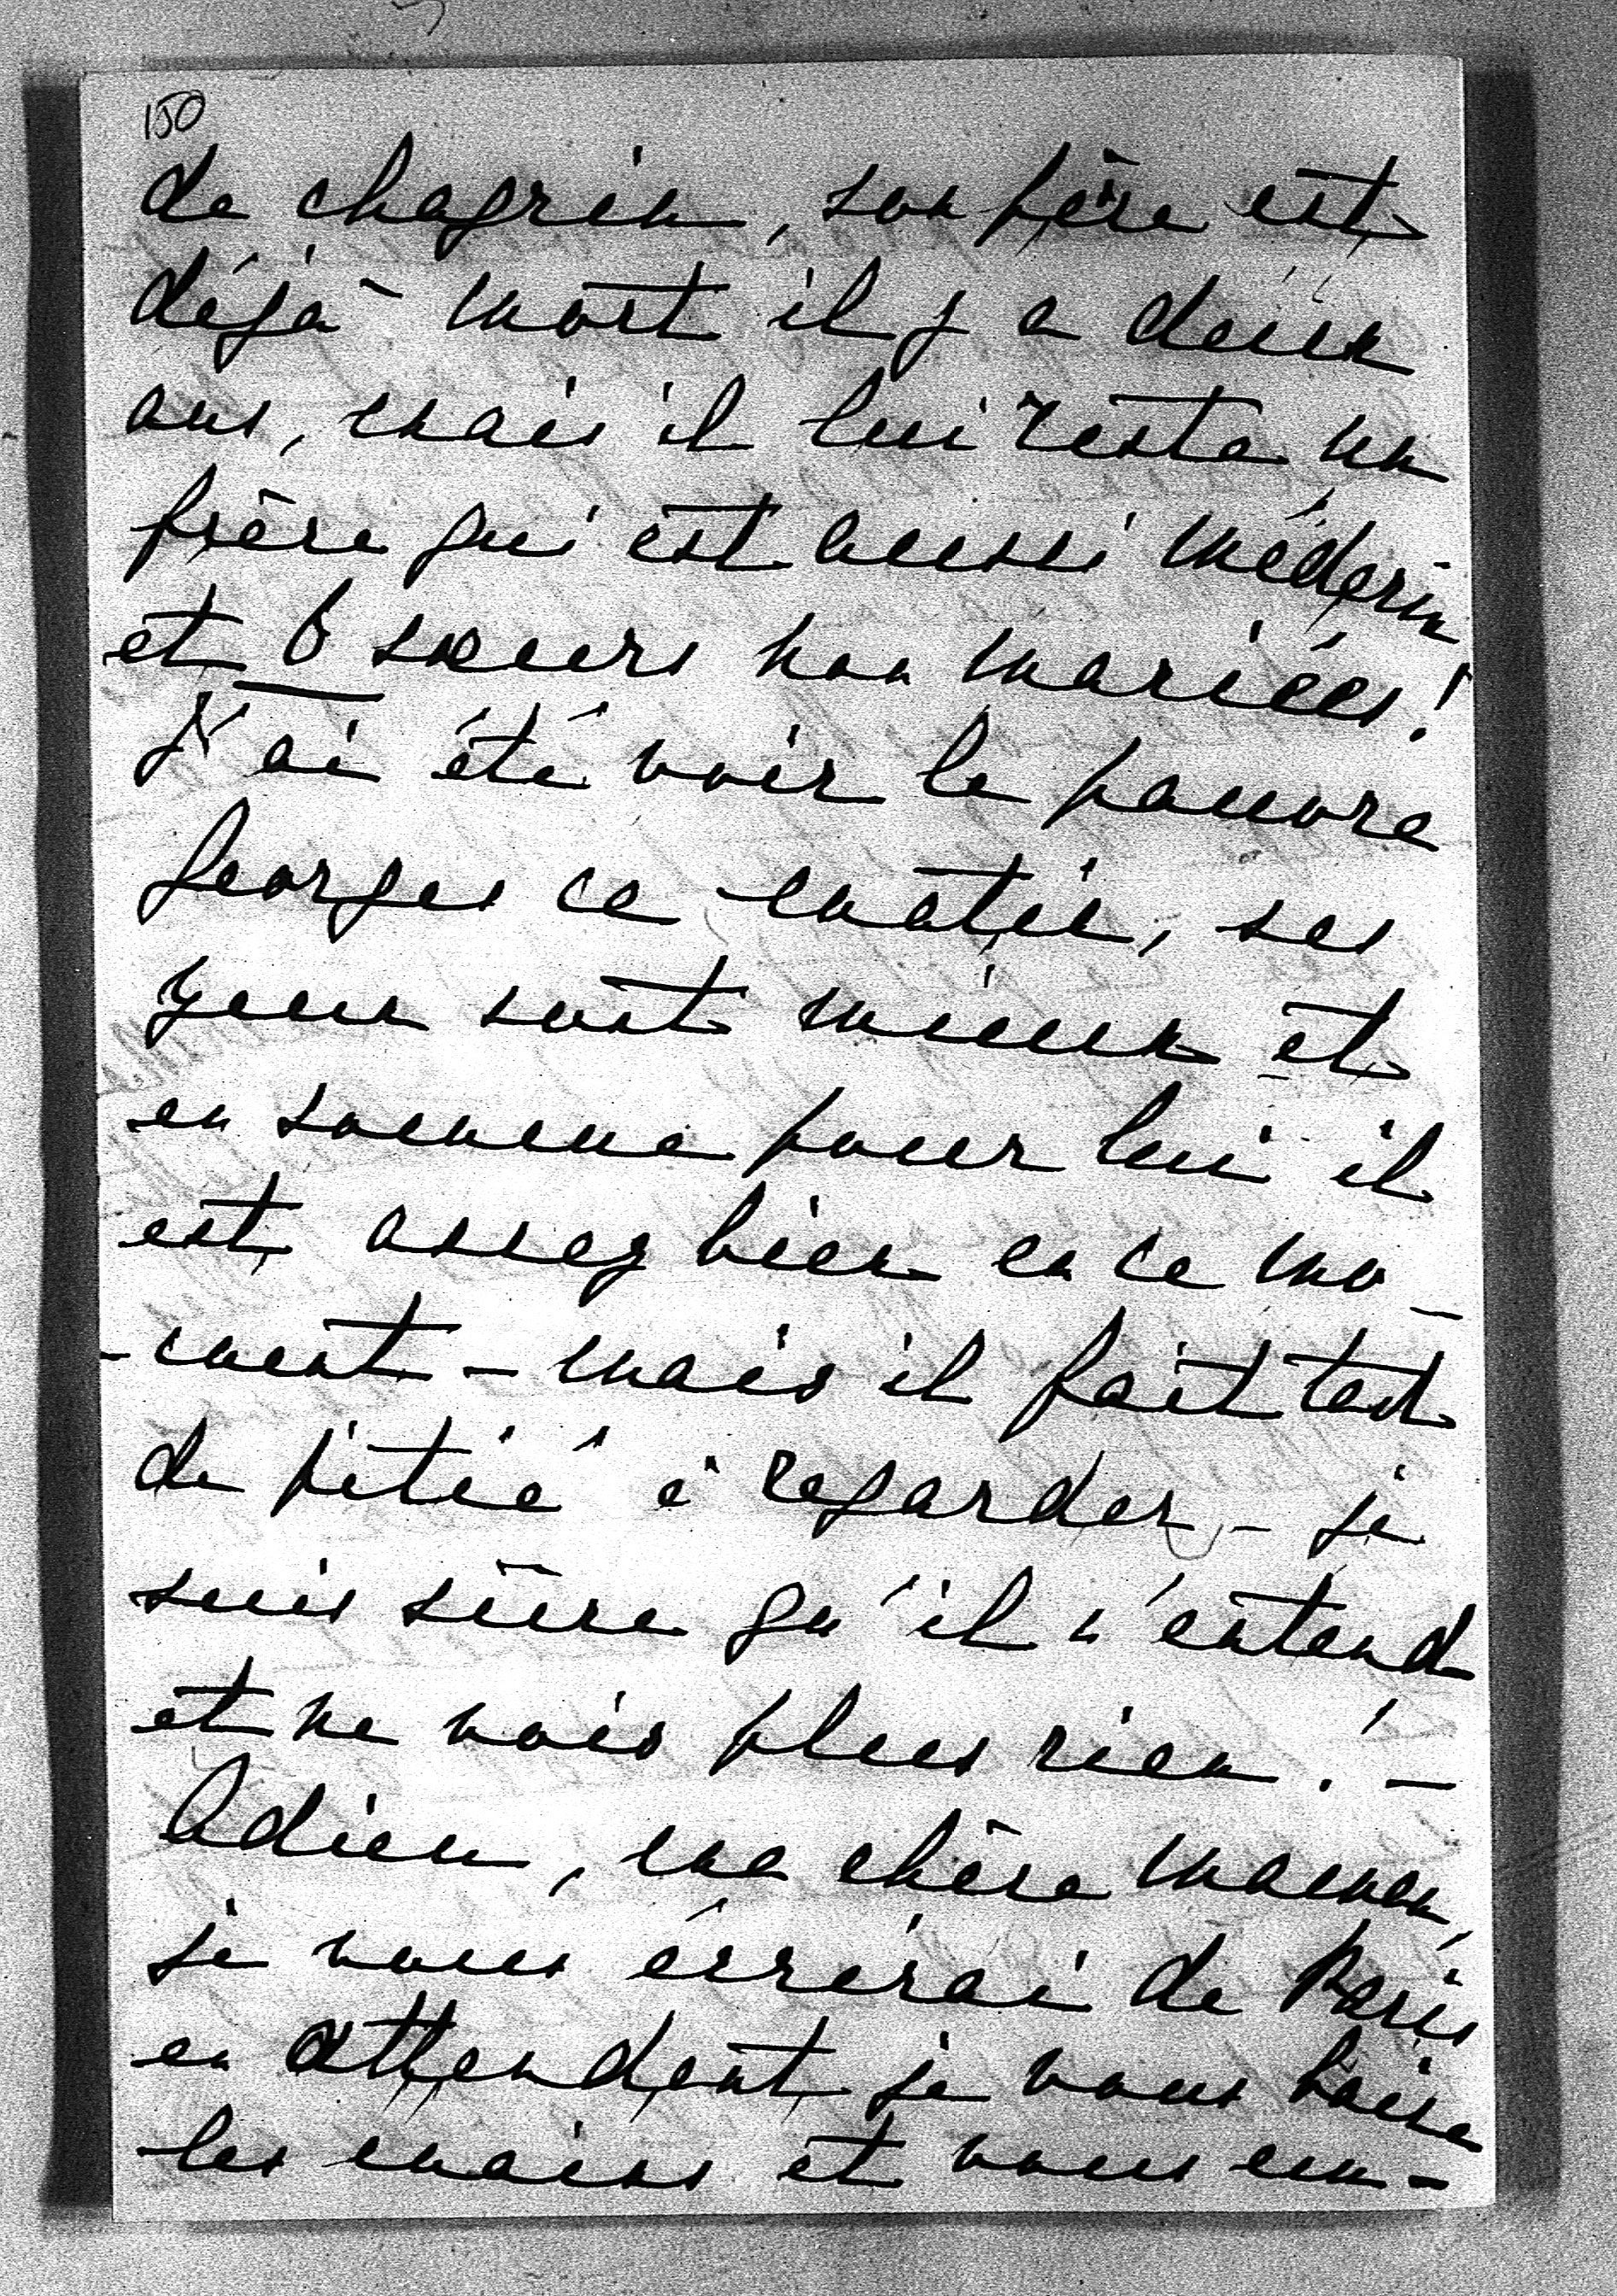 150
de chagrin, son père est
déjà mort il y a deux
ans, mais il lui reste un
frère qui est aussi médecin
et 6 sœurs non mariées!
J'ai été voir le pauvre
Georges ce matin, ses
yeux sont mieux et
en somme pour lui il
est assez bien en ce mo-
-ment - mais il fait tant
de pitié à regarder - je
suis sûre qu'il n'entend
et ne vois plus rien! -
Adieu, ma chère maman,
je vous écrirai de Paris
en attendant je vous baise
les mains et vous em-